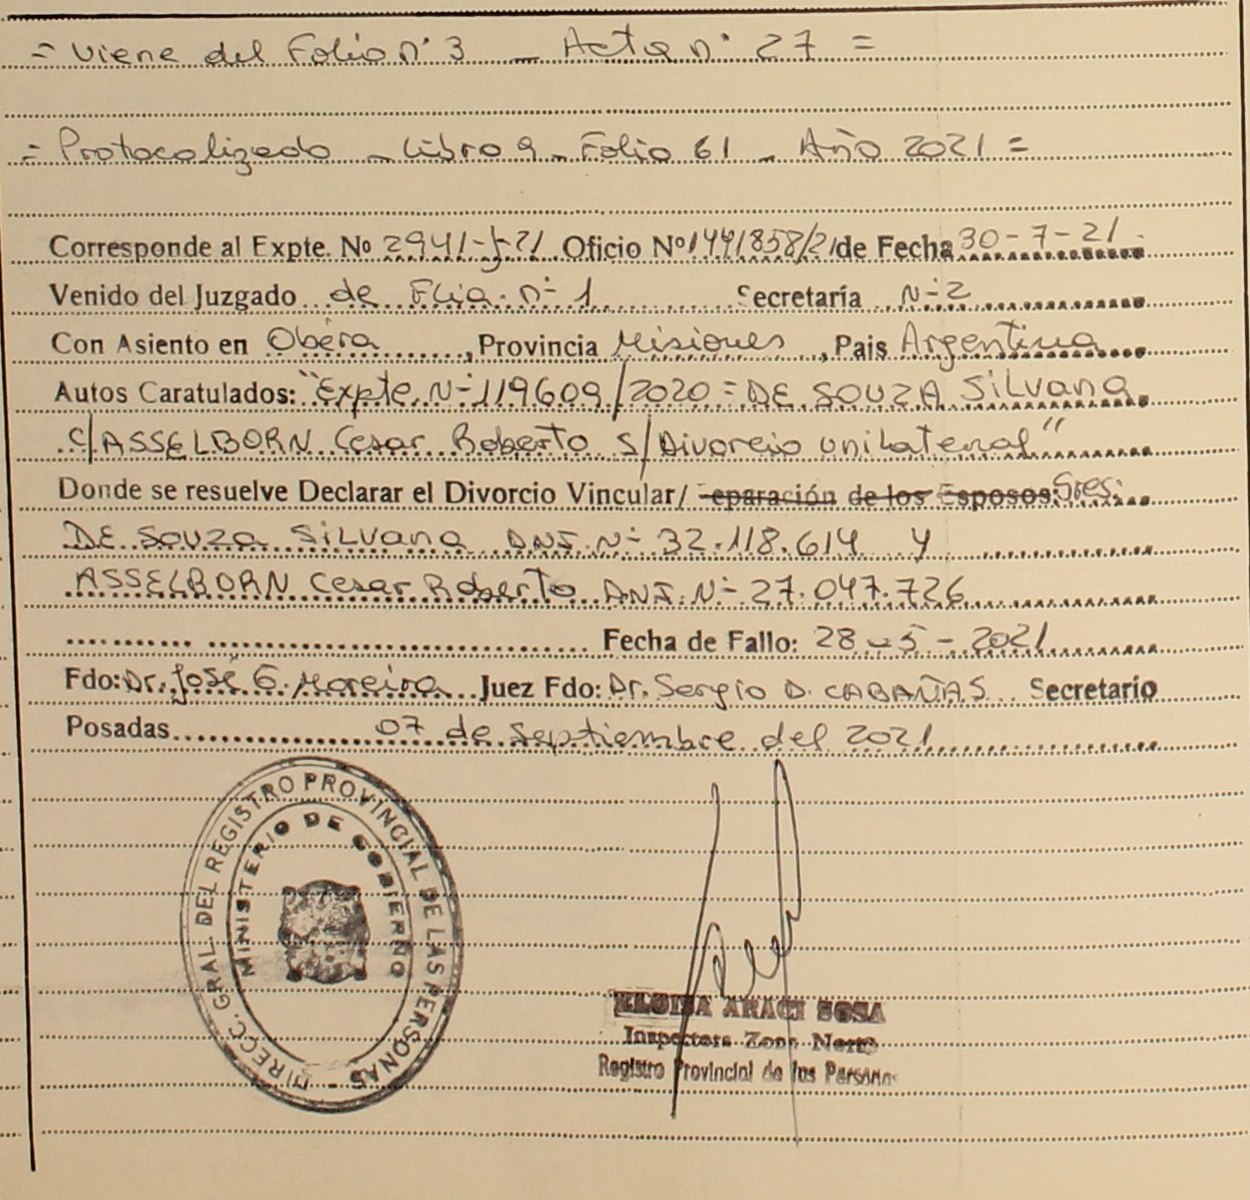 = Viene del Folio n° 3 _ Acta n° 27 =
= Protocolizado _ Libro 9 _ Folio 61 _ Año 2021 =
Corresponde al Expte. Nº 2941-J-21 Oficio Nº 1441858/21 de Fecha 30-7-21.
Venido del Juzgado de Flia. nº 1 Secretaría Nº 2
Con Asiento en Obera, Provincia Misiones, Pais Argentina
Autos Caratulados: "Expte. Nº 119609/2020 = DE SOUZA Silvana
c/ ASSELBORN Cesar Roberto s/ Divorcio unilateral"
Donde se resuelve Declarar el Divorcio Vincular/ Separación de los Esposos: Sres.
DE SOUZA Silvana DNI. Nº 32.118.614 y
ASSELBORN Cesar Roberto DNI. Nº 27.047.726
Fecha de Fallo: 28-5-2021
Fdo: Dr. José G. Moreira Juez Fdo: Dr. Sergio D. CABAÑAS Secretario
Posadas 07 de Septiembre del 2021
DIRECC. GRAL. DEL REGISTRO PROVINCIAL DE LAS PERSONAS -
MINISTERIO DE GOBIERNO
ELOISA ARACI SOSA
Inspectora Zona Norte
Registro Provincial de las Personas